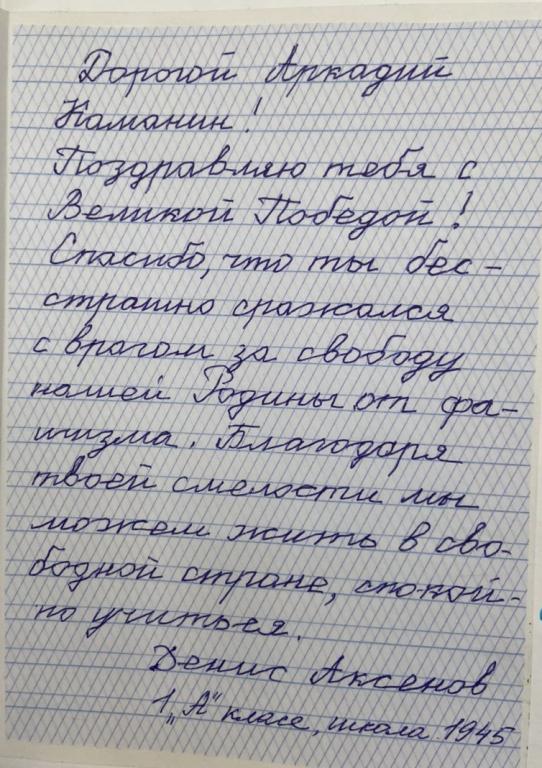 Дорогой Аркадий
Каманин!
Поздравляю тебя с
Великой Победой!
Спасибо, что ты бес-
страшно сражался
с врагом за свободу
нашей Родины от фа-
шизма. Благодаря
твоей смелости мы
можем жить в сво-
бодной стране, спокой-
но учиться.
Денис Аксенов
1 „А" класс, школа 1945